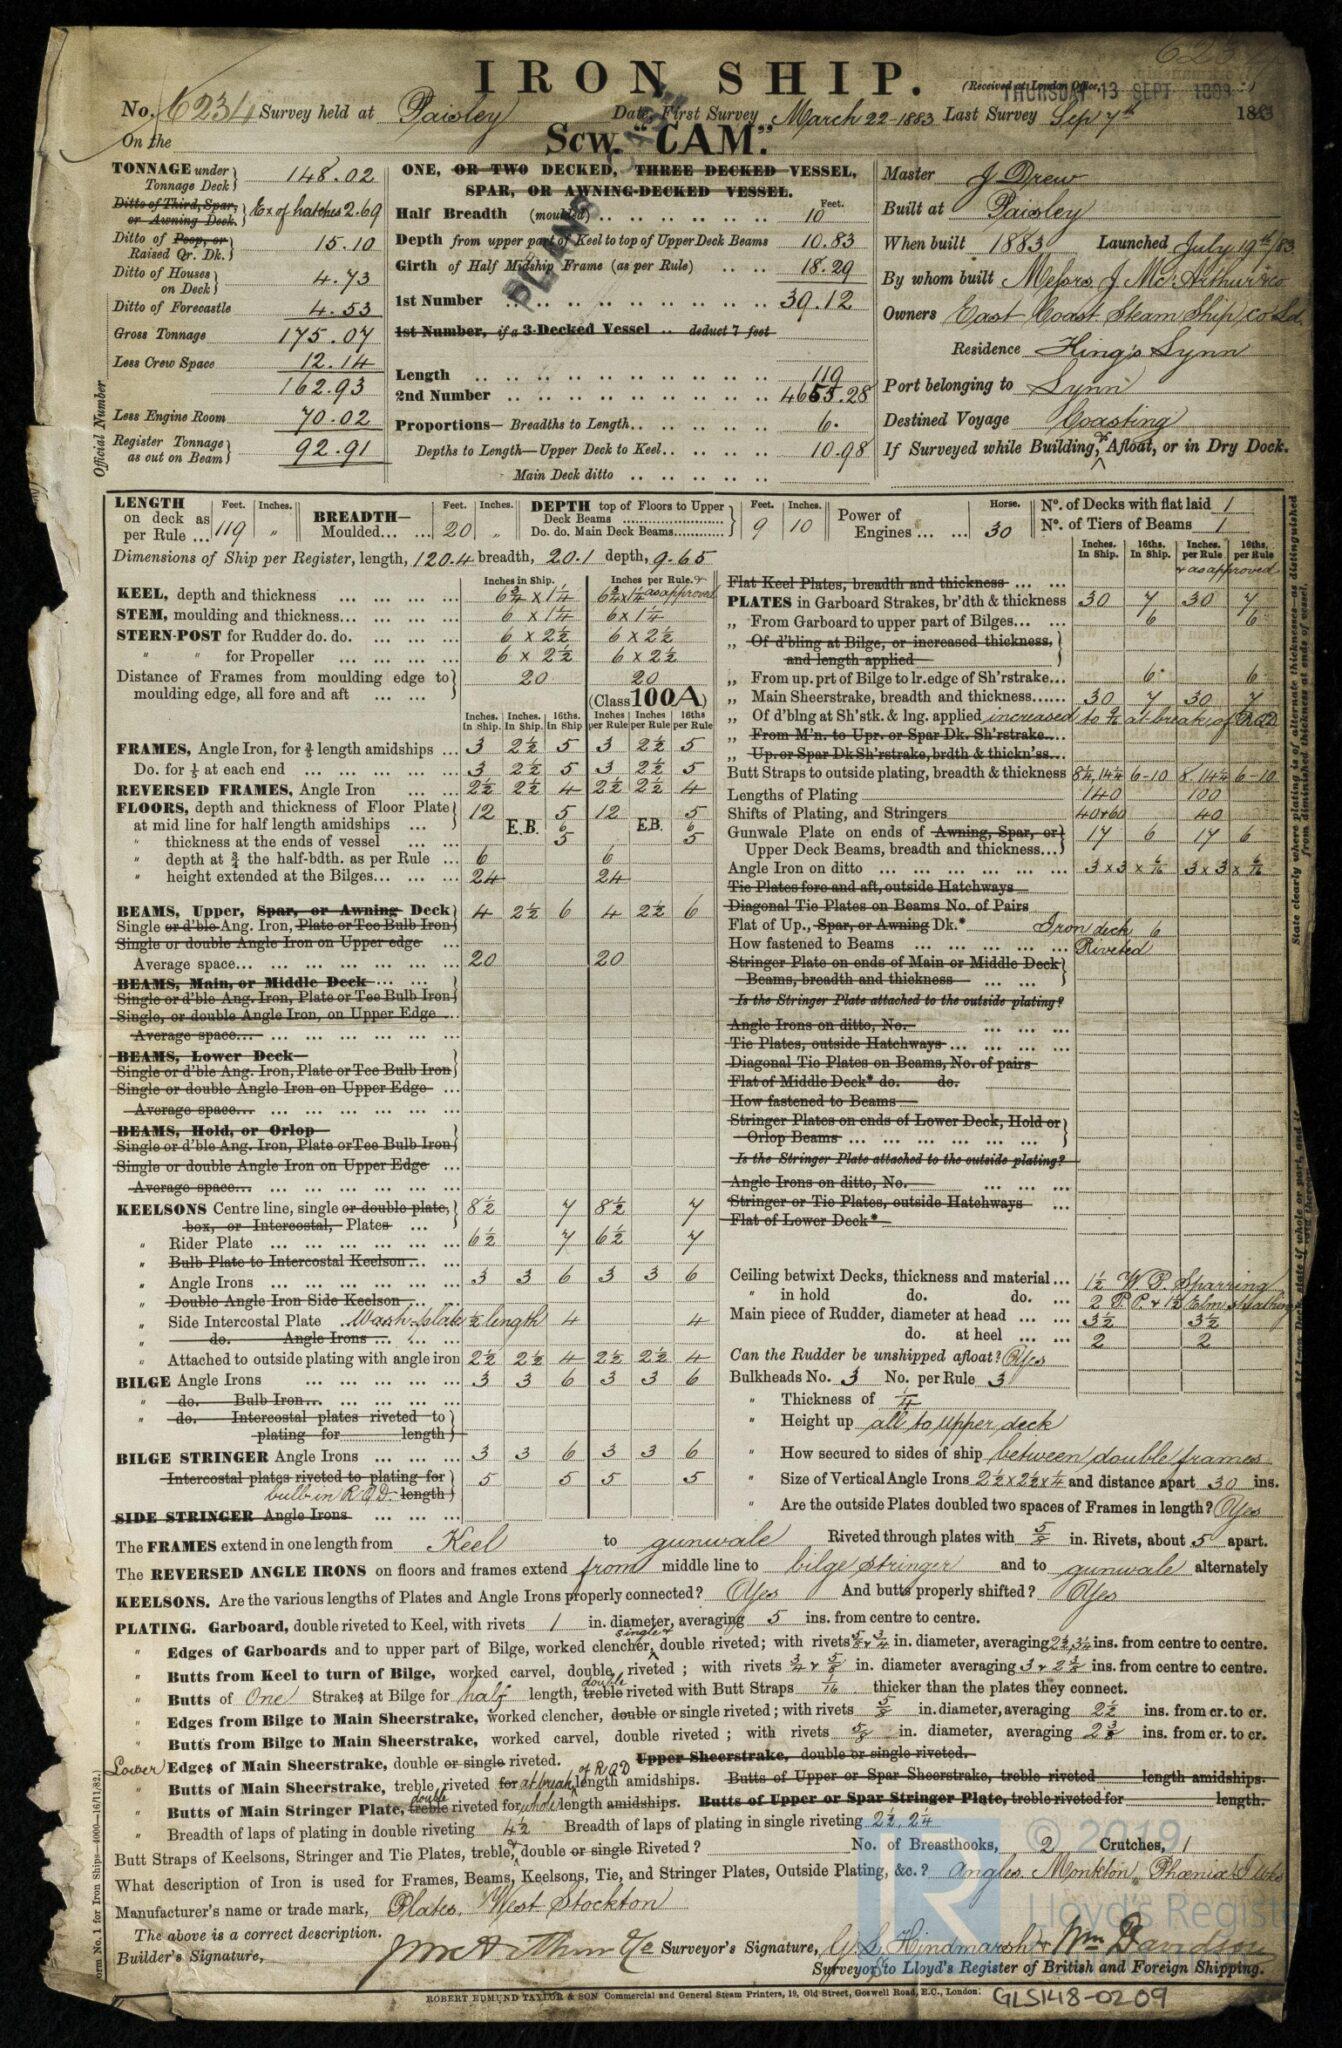 IRON SHIP.
(Received at London Office,
THURSDAY 13 SEPT 1883
No. 6234 Survey held at Paisley Date, First Survey March 22-1883 Last Survey Sep 7th 1883
On the Scw. "CAM."
PLANS
TONNAGE under Tonnage Deck 148.02
Ditto of Third, Spar, or Awning Deck. Ex of hatches 2.69
Ditto of Poop, or Raised Qr. Dk. 15.10
Ditto of Houses on Deck 4.73
Ditto of Forecastle 4.53
Gross Tonnage 175.07
Less Crew Space 12.14
162.93
Less Engine Room 70.02
Register Tonnage as cut on Beam 92.91
Official Number
ONE, OR TWO DECKED, THREE DECKED VESSEL,
SPAR, OR AWNING-DECKED VESSEL.
Feet.
Half Breadth (moulded) 10
Depth from upper part of Keel to top of Upper Deck Beams 10.83
Girth of Half Midship Frame (as per Rule) 18.29
1st Number 39.12
1st Number, if a 3-Decked Vessel deduct 7 feet
Length 119
2nd Number 4655.28
Proportions— Breadths to Length 6.
Depths to Length—Upper Deck to Keel 10.98
Main Deck ditto
Master J Drew
Built at Paisley
When built 1883 Launched July 19th/83
By whom built Messrs J McArthur & Co
Owners East Coast Steam Ship Co Ld.
Residence King's Lynn
Port belonging to Lynn
Destined Voyage Coasting
If Surveyed while Building, & Afloat, or in Dry Dock.
LENGTH on deck as per Rule Feet. 119 Inches. "
BREADTH— Moulded Feet. 20 Inches. "
DEPTH top of Floors to Upper Deck Beams Feet. 9 Inches. 10
Do. do. Main Deck Beams
Power of Engines Horse. 30
No. of Decks with flat laid 1
No. of Tiers of Beams 1
Dimensions of Ship per Register, length, 120.4 breadth, 20.1 depth, 9.65
Inches in Ship. Inches per Rule. & as approved
KEEL, depth and thickness 6 3/4 x 1 1/4 6 3/4 x 1 1/4
STEM, moulding and thickness 6 x 1 1/4 6 x 1 1/4
STERN-POST for Rudder do. do. 6 x 2 1/2 6 x 2 1/2
" " for Propeller 6 x 2 1/2 6 x 2 1/2
Distance of Frames from moulding edge to moulding edge, all fore and aft 20 20
(Class 100A)
Inches. In Ship. Inches. In Ship. 16ths. In Ship Inches per Rule Inches per Rule 16ths per Rule
FRAMES, Angle Iron, for 3/5 length amidships 3 2 1/2 5 3 2 1/2 5
Do. for 1/5 at each end 3 2 1/2 5 3 2 1/2 5
REVERSED FRAMES, Angle Iron 2 1/2 2 1/2 4 2 1/2 2 1/2 4
FLOORS, depth and thickness of Floor Plate at mid line for half length amidships 12 E.B. 5 6 12 E.B. 5 6
" thickness at the ends of vessel 5 5
" depth at 3/4 the half-bdth. as per Rule 6 6
" height extended at the Bilges 24 24
BEAMS, Upper, Spar, or Awning Deck
Single or d'ble Ang. Iron, Plate or Tee Bulb Iron 4 2 1/2 6 4 2 1/2 6
Single or double Angle Iron on Upper edge
Average space 20 20
BEAMS, Main, or Middle Deck
Single or d'ble Ang. Iron, Plate or Tee Bulb Iron
Single, or double Angle Iron, on Upper Edge
Average space
BEAMS, Lower Deck
Single or d'ble Ang. Iron, Plate or Tee Bulb Iron
Single or double Angle Iron on Upper Edge
Average space
BEAMS, Hold, or Orlop
Single or d'ble Ang. Iron, Plate or Tee Bulb Iron
Single or double Angle Iron on Upper Edge
Average space
KEELSONS Centre line, single or double plate, box, or Intercostal, Plates 8 1/2 7 8 1/2 7
" Rider Plate 6 1/2 7 6 1/2 7
" Bulb Plate to Intercostal Keelson
" Angle Irons 3 3 6 3 3 6
" Double Angle Iron Side Keelson
" Side Intercostal Plate Wash plate 1/2 length 4 4
" do. Angle Irons
" Attached to outside plating with angle iron 2 1/2 2 1/2 4 2 1/2 2 1/2 4
BILGE Angle Irons 3 3 6 3 3 6
" do. Bulb Iron
" do. Intercostal plates riveted to plating for length
BILGE STRINGER Angle Irons 3 3 6 3 3 6
Intercostal plates riveted to plating for length bulb in R Q D 5 5 5 5
SIDE STRINGER Angle Irons
Inches. In Ship. 16ths. In Ship. Inches. per Rule 16ths. per Rule
& as approved
Flat Keel Plates, breadth and thickness
PLATES in Garboard Strakes, br'dth & thickness 30 7 30 7
" From Garboard to upper part of Bilges 6 6
" Of d'bling at Bilge, or increased thickness, and length applied
" From up. prt of Bilge to lr. edge of Sh'rstrake 6 6
" Main Sheerstrake, breadth and thickness 30 7 30 7
" Of d'blng at Sh'stk. & lng. applied increased to 9/16 at break of R.Q.D.
" From M'n. to Upr. or Spar Dk. Sh'rstrake
" Up. or Spar Dk Sh'rstrake, brdth & thickn'ss
Butt Straps to outside plating, breadth & thickness 8 1/4, 14 1/4 6-10 8. 14 1/4 6-10
Lengths of Plating 140 100
Shifts of Plating, and Stringers 40 & 60 40
Gunwale Plate on ends of Awning, Spar, or Upper Deck Beams, breadth and thickness 17 6 17 6
Angle Iron on ditto 3 x 3 x 6/16 3 x 3 x 6/16
Tie Plates fore and aft, outside Hatchways
Diagonal Tie Plates on Beams No. of Pairs
Flat of Up., Spar, or Awning Dk.* Iron deck 6
How fastened to Beams Riveted
Stringer Plate on ends of Main or Middle Deck Beams, breadth and thickness
Is the Stringer Plate attached to the outside plating?
Angle Irons on ditto, No.
Tie Plates, outside Hatchways
Diagonal Tie Plates on Beams, No. of pairs
Flat of Middle Deck* do. do.
How fastened to Beams
Stringer Plates on ends of Lower Deck, Hold or Orlop Beams
Is the Stringer Plate attached to the outside plating?
Angle Irons on ditto, No.
Stringer or Tie Plates, outside Hatchways
Flat of Lower Deck*
Ceiling betwixt Decks, thickness and material 1 1/2 W. P. Sparring
" in hold do. do. 2 P. P. & 1 1/2 Elm sheathing
Main piece of Rudder, diameter at head 3 1/2 3 1/2
do. at heel 2 2
Can the Rudder be unshipped afloat? Yes
Bulkheads No. 3 No. per Rule 3
" Thickness of 1/4
" Height up all to upper deck
" How secured to sides of ship between double frames
" Size of Vertical Angle Irons 2 1/2 x 2 1/2 x 1/4 and distance apart 30 ins.
" Are the outside Plates doubled two spaces of Frames in length? Yes
State clearly where plating is of alternate thicknesses—as distinguished from diminished thickness at ends of vessel.
The FRAMES extend in one length from Keel to gunwale Riveted through plates with 5/8 in. Rivets, about 5 apart.
The REVERSED ANGLE IRONS on floors and frames extend from middle line to bilge stringer and to gunwale alternately
KEELSONS. Are the various lengths of Plates and Angle Irons properly connected? Yes And butts properly shifted? Yes
PLATING. Garboard, double riveted to Keel, with rivets 1 in. diameter, averaging 5 ins. from centre to centre.
" Edges of Garboards and to upper part of Bilge, worked clencher, single & double riveted; with rivets 5/8 & 3/4 in. diameter, averaging 2 1/2, 3 1/4 ins. from centre to centre.
" Butts from Keel to turn of Bilge, worked carvel, double riveted; with rivets 3/4 & 5/8 in. diameter averaging 3 & 2 3/8 ins. from centre to centre.
" Butts of One Strakes at Bilge for half length, treble double riveted with Butt Straps 1/16 thicker than the plates they connect.
" Edges from Bilge to Main Sheerstrake, worked clencher, double or single riveted; with rivets 5/8 in. diameter, averaging 2 1/2 ins. from cr. to cr.
" Butts from Bilge to Main Sheerstrake, worked carvel, double riveted; with rivets 5/8 in. diameter, averaging 2 3/8 ins. from cr. to cr.
Lower Edges of Main Sheerstrake, double or single riveted. Upper Sheerstrake, double or single riveted.
" Butts of Main Sheerstrake, treble riveted for at break of R Q D length amidships. Butts of Upper or Spar Sheerstrake, treble riveted length amidships.
" Butts of Main Stringer Plate, treble double riveted for whole length amidships. Butts of Upper or Spar Stringer Plate, treble riveted for length.
" Breadth of laps of plating in double riveting 4 1/2 Breadth of laps of plating in single riveting 2 1/2, 2 1/4
Butt Straps of Keelsons, Stringer and Tie Plates, treble, & double or single Riveted? No. of Breasthooks, 2 Crutches, 1
What description of Iron is used for Frames, Beams, Keelsons, Tie, and Stringer Plates, Outside Plating, &c.? Angles Monkton, Phœnix
Manufacturer's name or trade mark, Plates, West Stockton
The above is a correct description.
Builder's Signature, J McArthur & Co Surveyor's Signature, G. S. Hindmarsh & Wm Davidson
Surveyor to Lloyd's Register of British and Foreign Shipping.
Form No. 1 for Iron Ships—4000—16/11/82.
ROBERT EDMUND TAYLOR & SON Commercial and General Steam Printers, 19, Old Street, Goswell Road, E.C., London.
GLS1418-0209
© 2019
Lloyd's Register